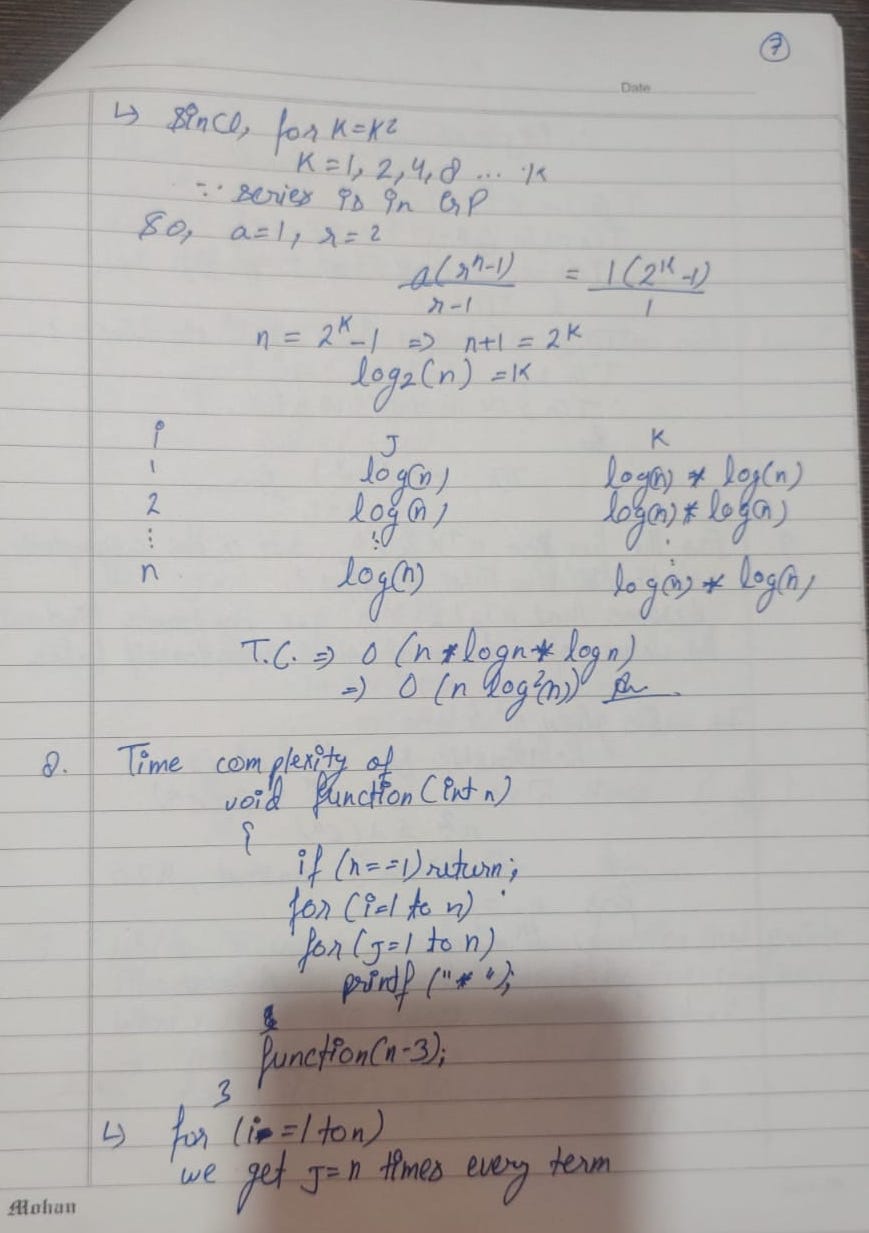 7
Date
↳ Since, for K=K2
K=1, 2, 4, 8 ... K
∵ series is in GP
So, a=1, r=2
a(rⁿ-1) / r-1 = 1(2ᴷ-1) / 1
n = 2ᴷ-1 => n+1 = 2ᴷ
log₂(n) = K
i J K
1 log(n) log(n) * log(n)
2 log(n) log(n) * log(n)
⋮ ⋮ ⋮
n log(n) log(n) * log(n)
T.C. => O (n * logn * logn)
=> O (n log²(n))
8. Time complexity of
void function (int n)
{
if (n==1) return;
for (i=1 to n)
for (J=1 to n)
printf ("*");
function(n-3);
}
↳ for (i=1 to n)
we get J=n times every term
Mohan